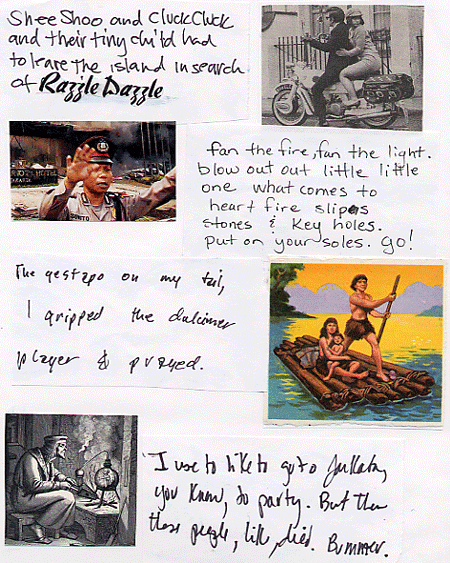 SheeShoo and CluckCluck
and their tiny child had
to leave the island in search
of Razzle Dazzle
fan the fire, fan the light.
blow out out little little
one what comes to
heart fire slips
stones & key holes.
put on your soles. Go!
The gestapo on my tail,
I gripped the dulcimer
player & prayed.
I use to like to go to Jarkata,
you know, to party. But then
those people, like, died. Bummer.